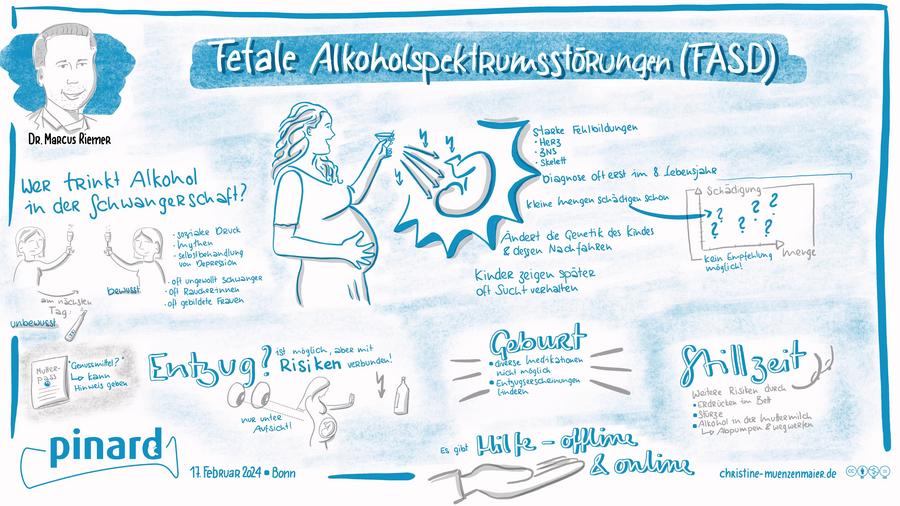 Fetale Alkoholspektrumsstörungen (FASD)
Dr. Marcus Riemer
Wer trinkt Alkohol
in der Schwangerschaft?
• sozialer Druck
• Mythen
• selbstbehandlung
von Depression
• oft ungewollt schwanger
• oft Raucherinnen
• oft gebildete Frauen
bewusst
am nächsten
Tag:
unbewusst
starke Fehlbildungen
• Herz
• ZNS
• Skelett
Diagnose oft erst im 8 Lebensjahr
kleine Mengen schädigen schon
Schädigung
? ? ? ?
? ? ? ?
Menge
kein Empfehlung
möglich!
Ändert die Genetik des Kindes
& dessen Nachfahren
Kinder zeigen später
oft Suchtverhalten
Mutter-
pass
"Genussmittel?"
↳ kann
Hinweis geben
Entzug?
ist möglich, aber mit
Risiken verbunden!
nur unter
Aufsicht!
Geburt
• diverse Medikationen
nicht möglich
• Entzugserscheinungen
lindern
Stillzeit
Weitere Risiken durch
• Erdrücken im Bett
• Stürze
• Alkohol in der Muttermilch
↳ Abpumpen & wegwerfen
Es gibt Hilfe - offline
& online
pinard
17. Februar 2024 • Bonn
christine-muenzenmaier.de